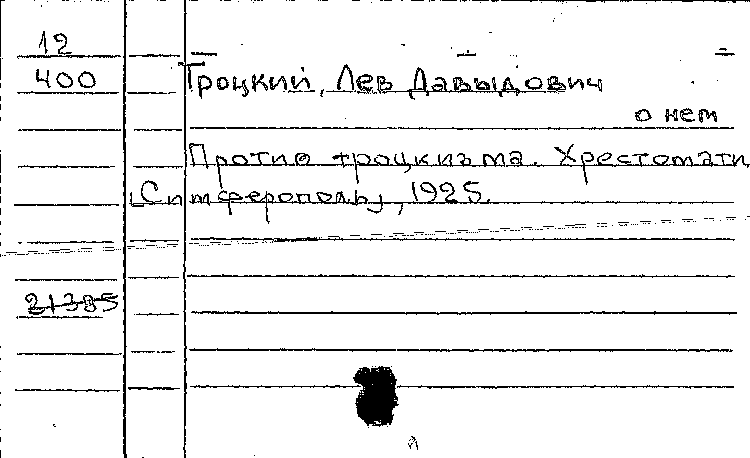 12
400 Троцкий, Лев Давыдович
о нем
Против троцкизма. Хрестомати
[Симферополь], 1925.
21385